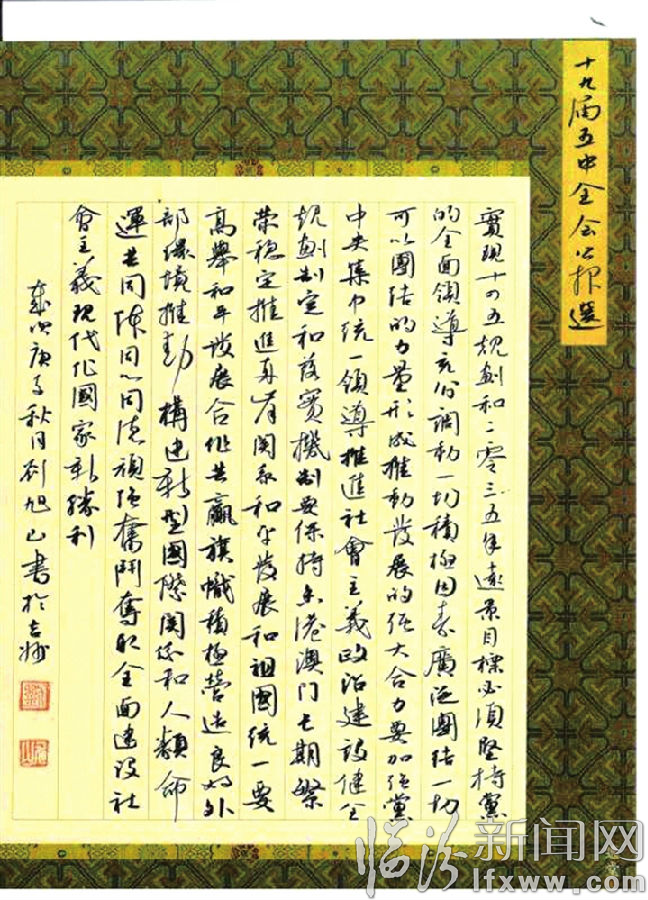 十九届五中全会公报選
實現十四五規劃和二零三五年遠景目標必須堅持黨
的全面領導充份調動一切積極因素廣泛團結一切
可以團結的力量形成推動發展的强大合力要加强黨
中央集中统一領導推進社會主義政治建設健全
規劃制定和落實機制要保持香港澳门长期繁
荣稳定推進两岸関系和平發展和祖國统一要
高舉和平發展合作共赢旗幟積極營造良好外
部環境推動構建新型國際関係和人類命
運共同体同心同德頑强奮鬥奪取全面建設社
會主義現代化國家新勝利
歲次庚子秋月刘旭山書於吉州
临汾新闻网
lfxww.com